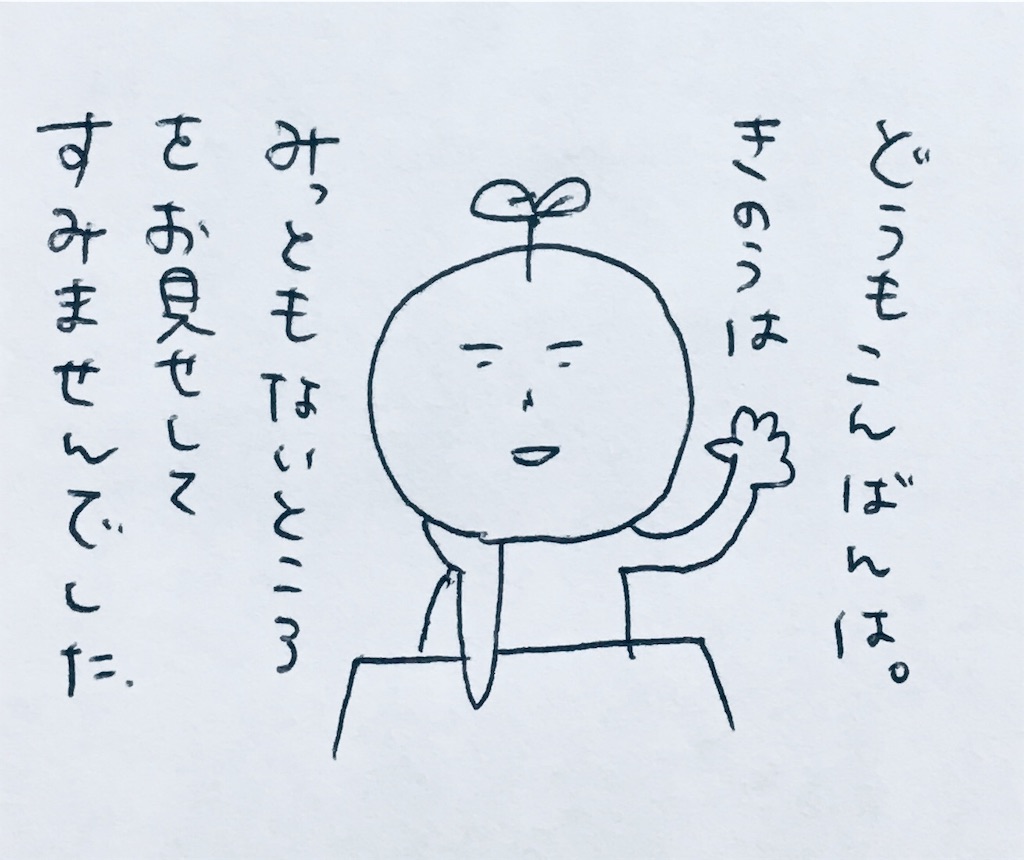 どうもこんばんは。
きのうは
みっともないところ
をお見せして
すみませんでした.